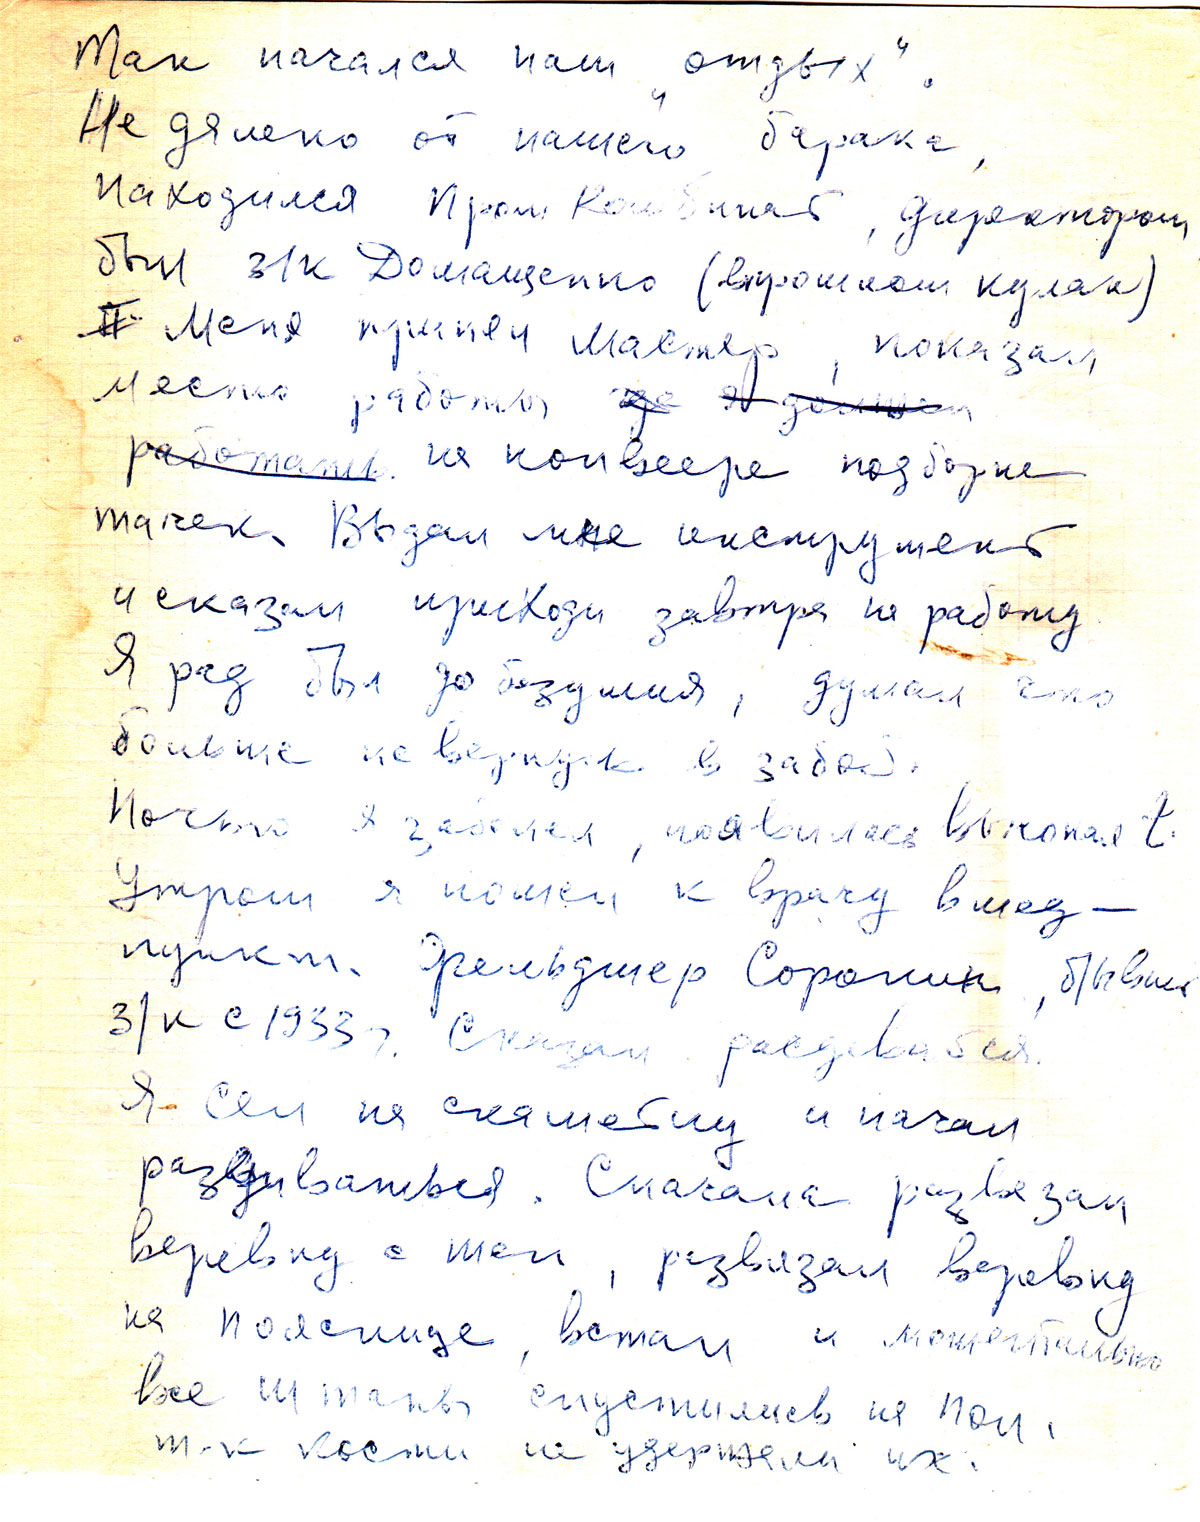 Так начался наш „отдых“.
Не дялеко от нашего барака,
находился ПромКомбинат, директором
был з/к Домащенко (впрошлом кулак)
Меня принял мастер, показал
место работы где я должен
работать. на конвеере подборке
тачек. Выдал мне инструмент
и сказал приходи завтра на работу
Я рад был до безумия, думал что
больше не вернусь в забой.
Ночью я заболел, появилась высокая t.
Утром я пошел к врачу вмед-
пункт. Фельдшер Сорокин, бывш
з/к с 1933г. Сказал расдеватся.
Я сел на скамейку и начал
раздиваться. Сначала развезал
веревку с шеи, развязал веревку
на пояснице, встал и моментально
все штаны спустились на пол,
т-к кости не удержали их.